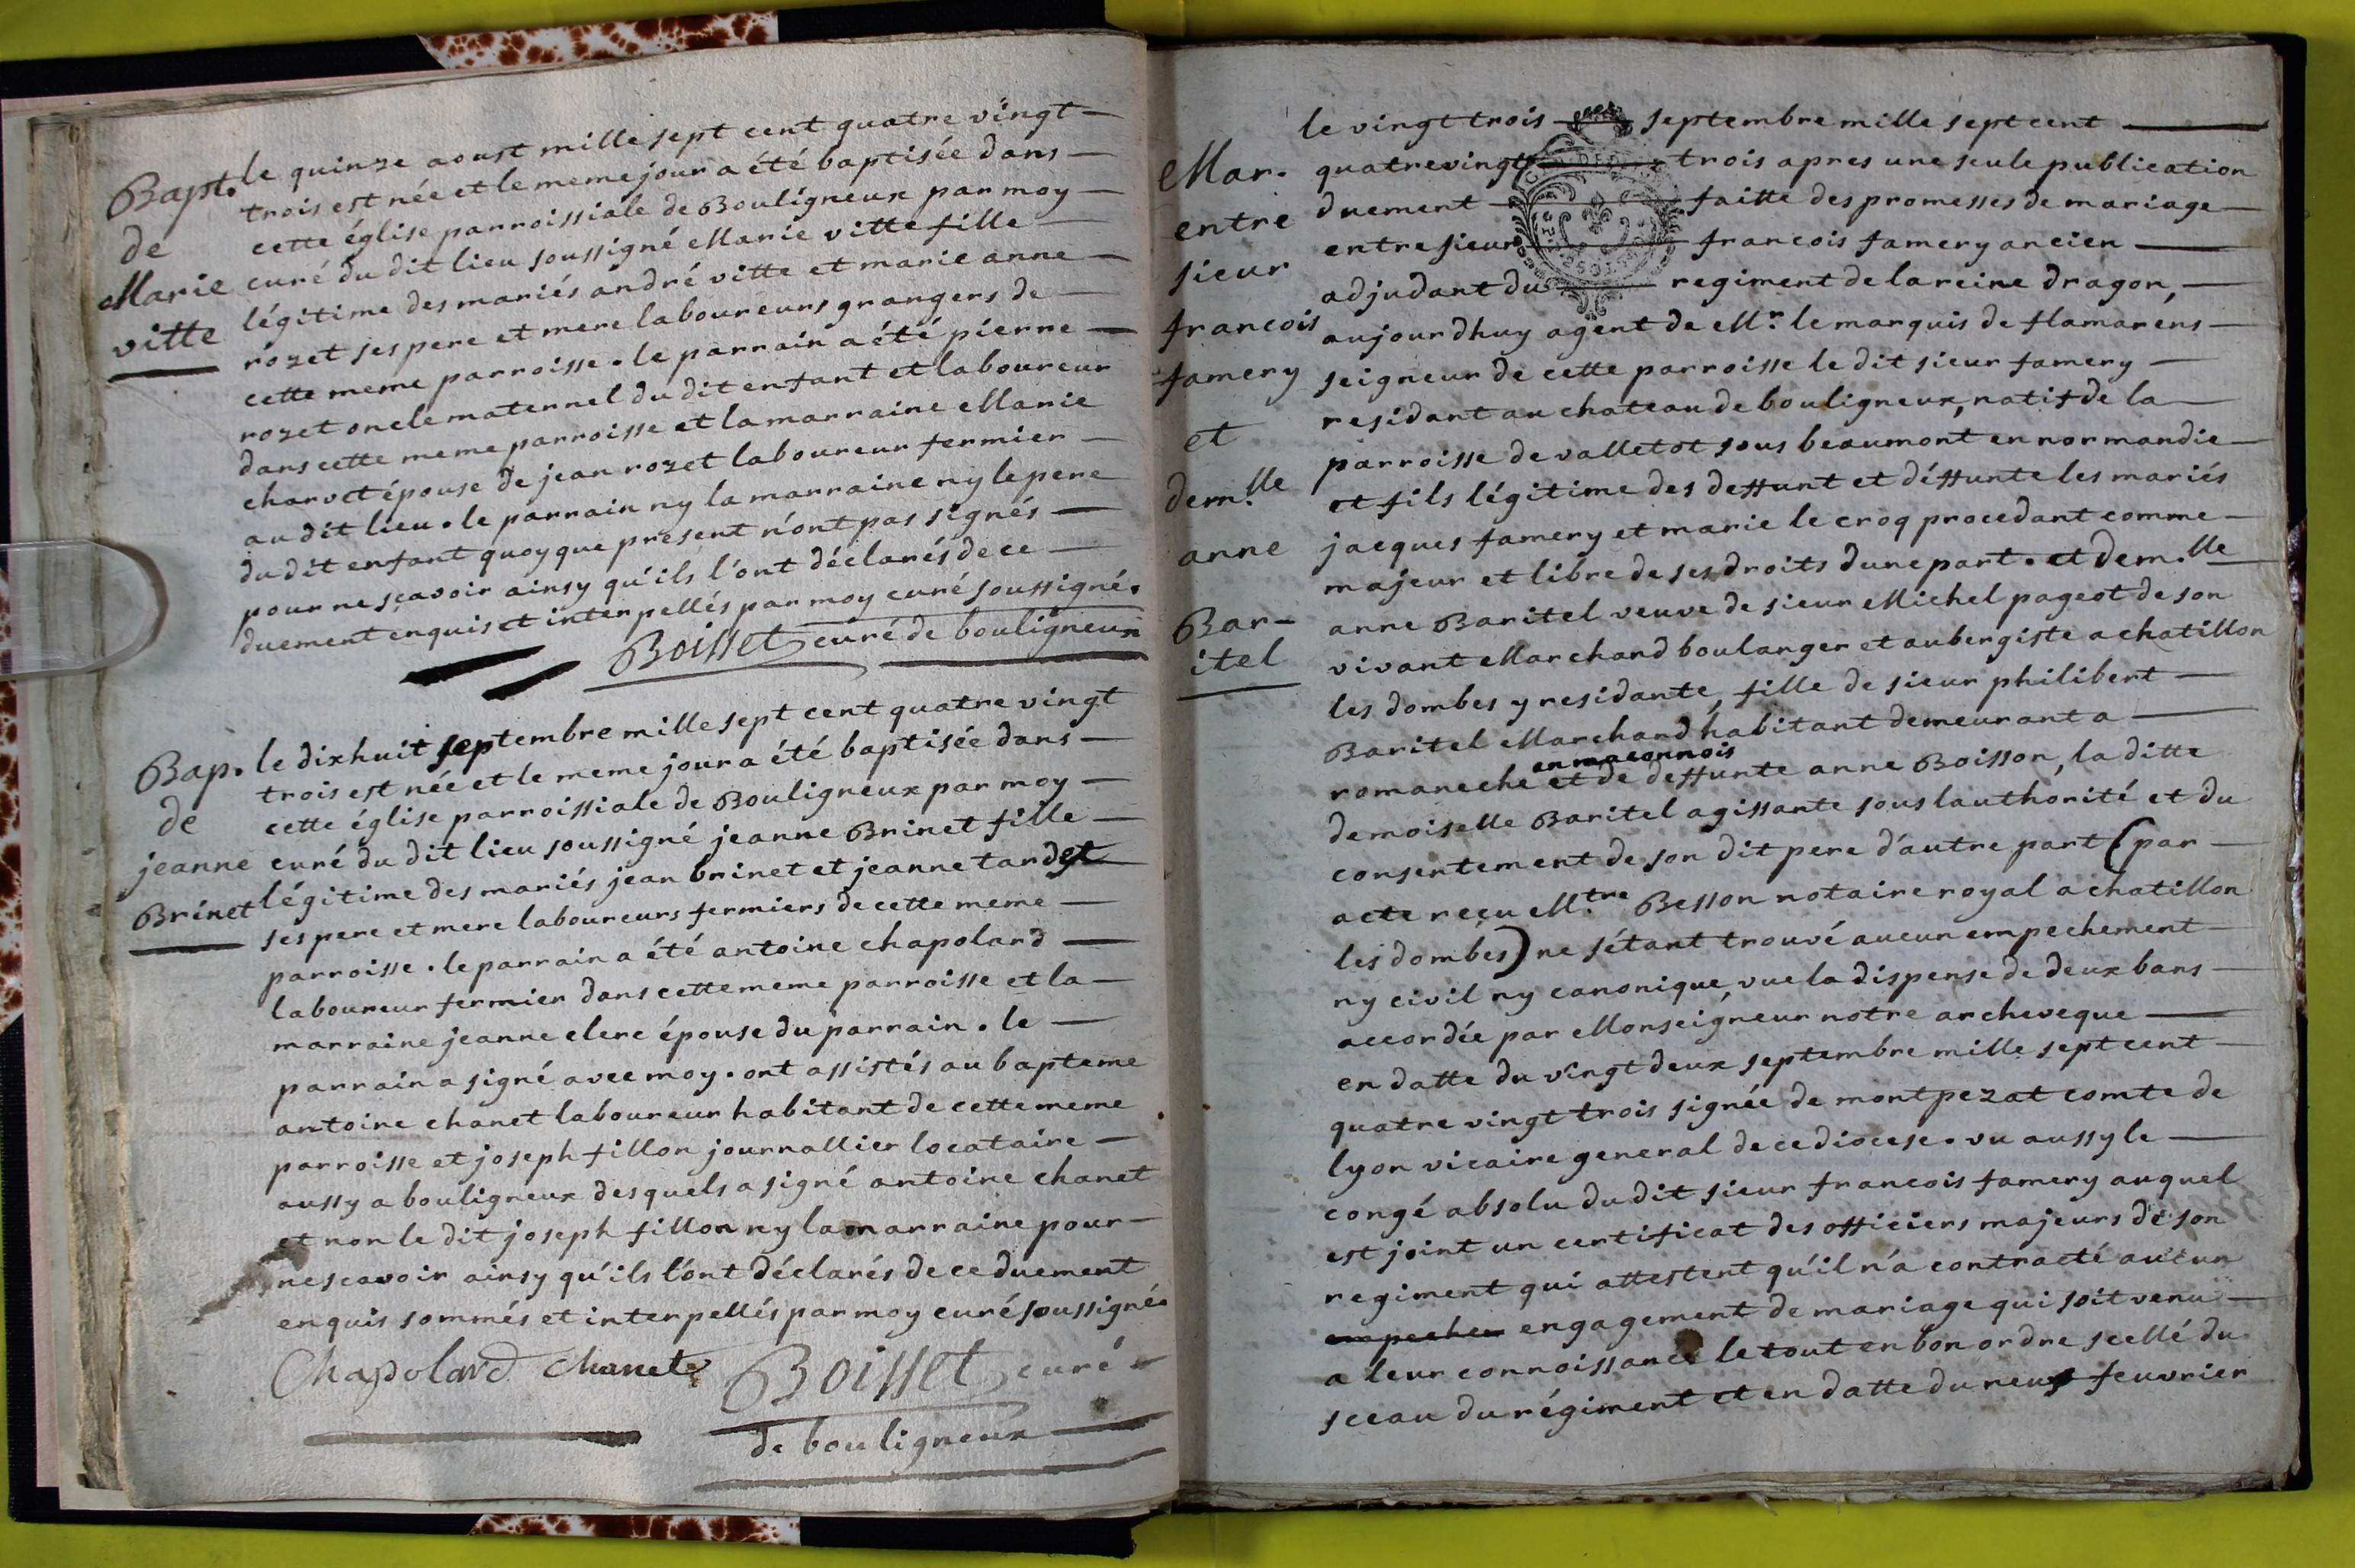 Bapt.
de
Marie
vitte
le quinze aoust mille sept cent quatre vingt
trois est née et le meme jour a été baptisée dans
cette église parroissiale de Bouligneux par moy
curé du dit lieu soussigné Marie vitte fille
légitime des mariés andré vitte et marie anne
rozet ses pere et mere laboureurs grangers de
cette meme parroisse. le parrain a été pierre
rozet oncle maternel du dit enfant et laboureur
dans cette meme parroisse et la marraine Marie
charvet épouse de jean rozet laboureur fermier
au dit lieu. le parrain ny la marraine ny le pere
du dit enfant quoyque present n'ont pas signés
pour ne sçavoir ainsy qu'ils l'ont déclarés de ce
duement enquis et interpellés par moy curé soussigné.
Boisset curé de bouligneux
Bap.
de
jeanne
Brinet
le dixhuit septembre mille sept cent quatre vingt
trois est née et le meme jour a été baptisée dans
cette église parroissiale de Bouligneux par moy
curé du dit lieu soussigné jeanne Brinet fille
légitime des mariés jean brinet et jeanne tardet
ses pere et mere laboureurs fermiers de cette meme
parroisse. le parrain a été antoine chapolard
laboureur fermier dans cette meme parroisse et la
marraine jeanne clerc épouse du parrain. le
parrain a signé avec moy. ont assistés au bapteme
antoine chanet laboureur habitant de cette meme
parroisse et joseph fillon journallier locataire
aussy a bouligneux desquels a signé antoine chanet
et non le dit joseph fillon ny la marraine pour
ne scavoir ainsy qu'ils l'ont déclarés de ce duement
enquis sommés et interpellés par moy curé soussigné.
Chapolard Chanet Boisset curé
de bouligneux
Mar.
entre
sieur
francois
famery
et
dem.lle
anne
Bar-
itel
le vingt trois septembre mille sept cent
quatre vingt trois apres une seule publication
duement faitte des promesses de mariage
entre sieur francois famery ancien
adjudant du regiment de la reine dragon,
aujourdhuy agent de Mr. le marquis de flamarens
seigneur de cette parroisse le dit sieur famery
residant au chateau de bouligneux, natif de la
parroisse de valletot sous beaumont en normandie
et fils légitime des deffunt et déffunte les mariés
jacques famery et marie le croq procedant comme
majeur et libre de ses droits dune part. et dem.lle
anne Baritel veuve de sieur Michel pageot de son
vivant Marchand boulanger et aubergiste a chatillon
les dombes y residante, fille de sieur philibert
Baritel Marchand habitant demeurant a
en maconnois
romaneche et de deffunte anne Boisson, la ditte
demoiselle Baritel agissante sous lauthorité et du
consentement de son dit pere d'autre part (par
acte reçu M.tre Besson notaire royal a chatillon
les dombes) ne s'étant trouvé aucun empechement
ny civil ny canonique, vue la dispense de deux bans
accordée par Monseigneur notre archeveque
en datte du vingt deux septembre mille sept cent
quatre vingt trois signée de montpezat comte de
lyon vicaire general de ce diocese. vu aussy le
congé absolu du dit sieur francois famery auquel
est joint un certificat des officiers majeurs de son
regiment qui attestent qu'il n'a contracté aucun
empecher engagement de mariage qui soit venu
a leur connoissance le tout en bon ordre scellé du
sceau du régiment et en datte du neuf feuvrier